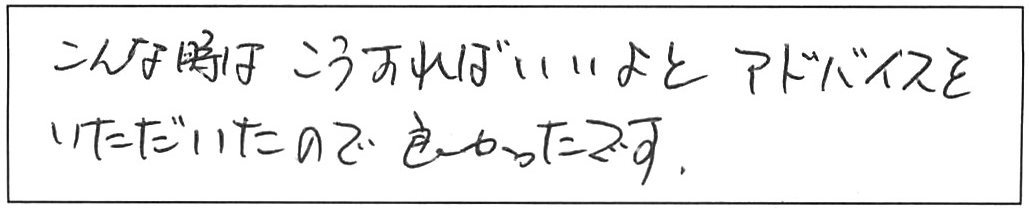 こんな時は こうすればいいよと アドバイスを
いただいたので 良かったです.